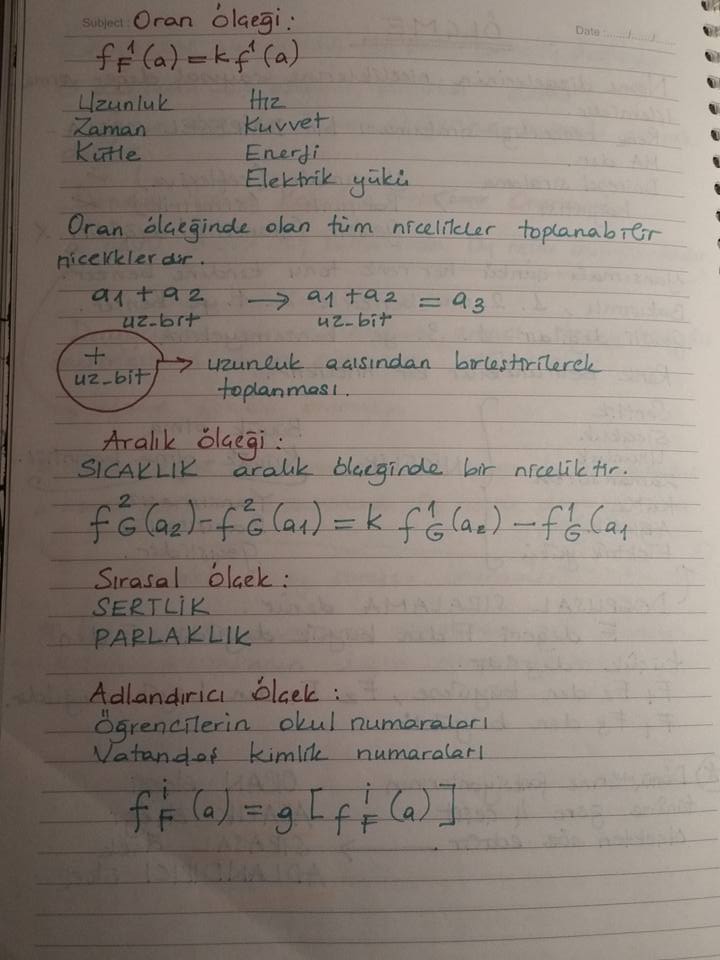 Subject: Oran ölçeği: Date:....../....../......
f¹F(a) = k f¹(a)
Uzunluk Hız
Zaman Kuvvet
Kütle Enerji
Elektrik yükü
Oran ölçeğinde olan tüm nicelikler toplanabilir
niceliklerdir.
a1 + a2 → a1 + a2 = a3
uz-bit uz-bit
+ → uzunluk açısından birleştirilerek
uz-bit toplanması.
Aralık ölçeği:
SICAKLIK aralık ölçeğinde bir niceliktir.
f²G(a2) - f²G(a1) = k f¹G(a2) - f¹G(a1
Sırasal ölçek:
SERTLİK
PARLAKLIK
Adlandırıcı Ölçek:
Öğrencilerin okul numaraları
Vatandaş kimlik numaraları
fⁱF(a) = g[fⁱF(a)]